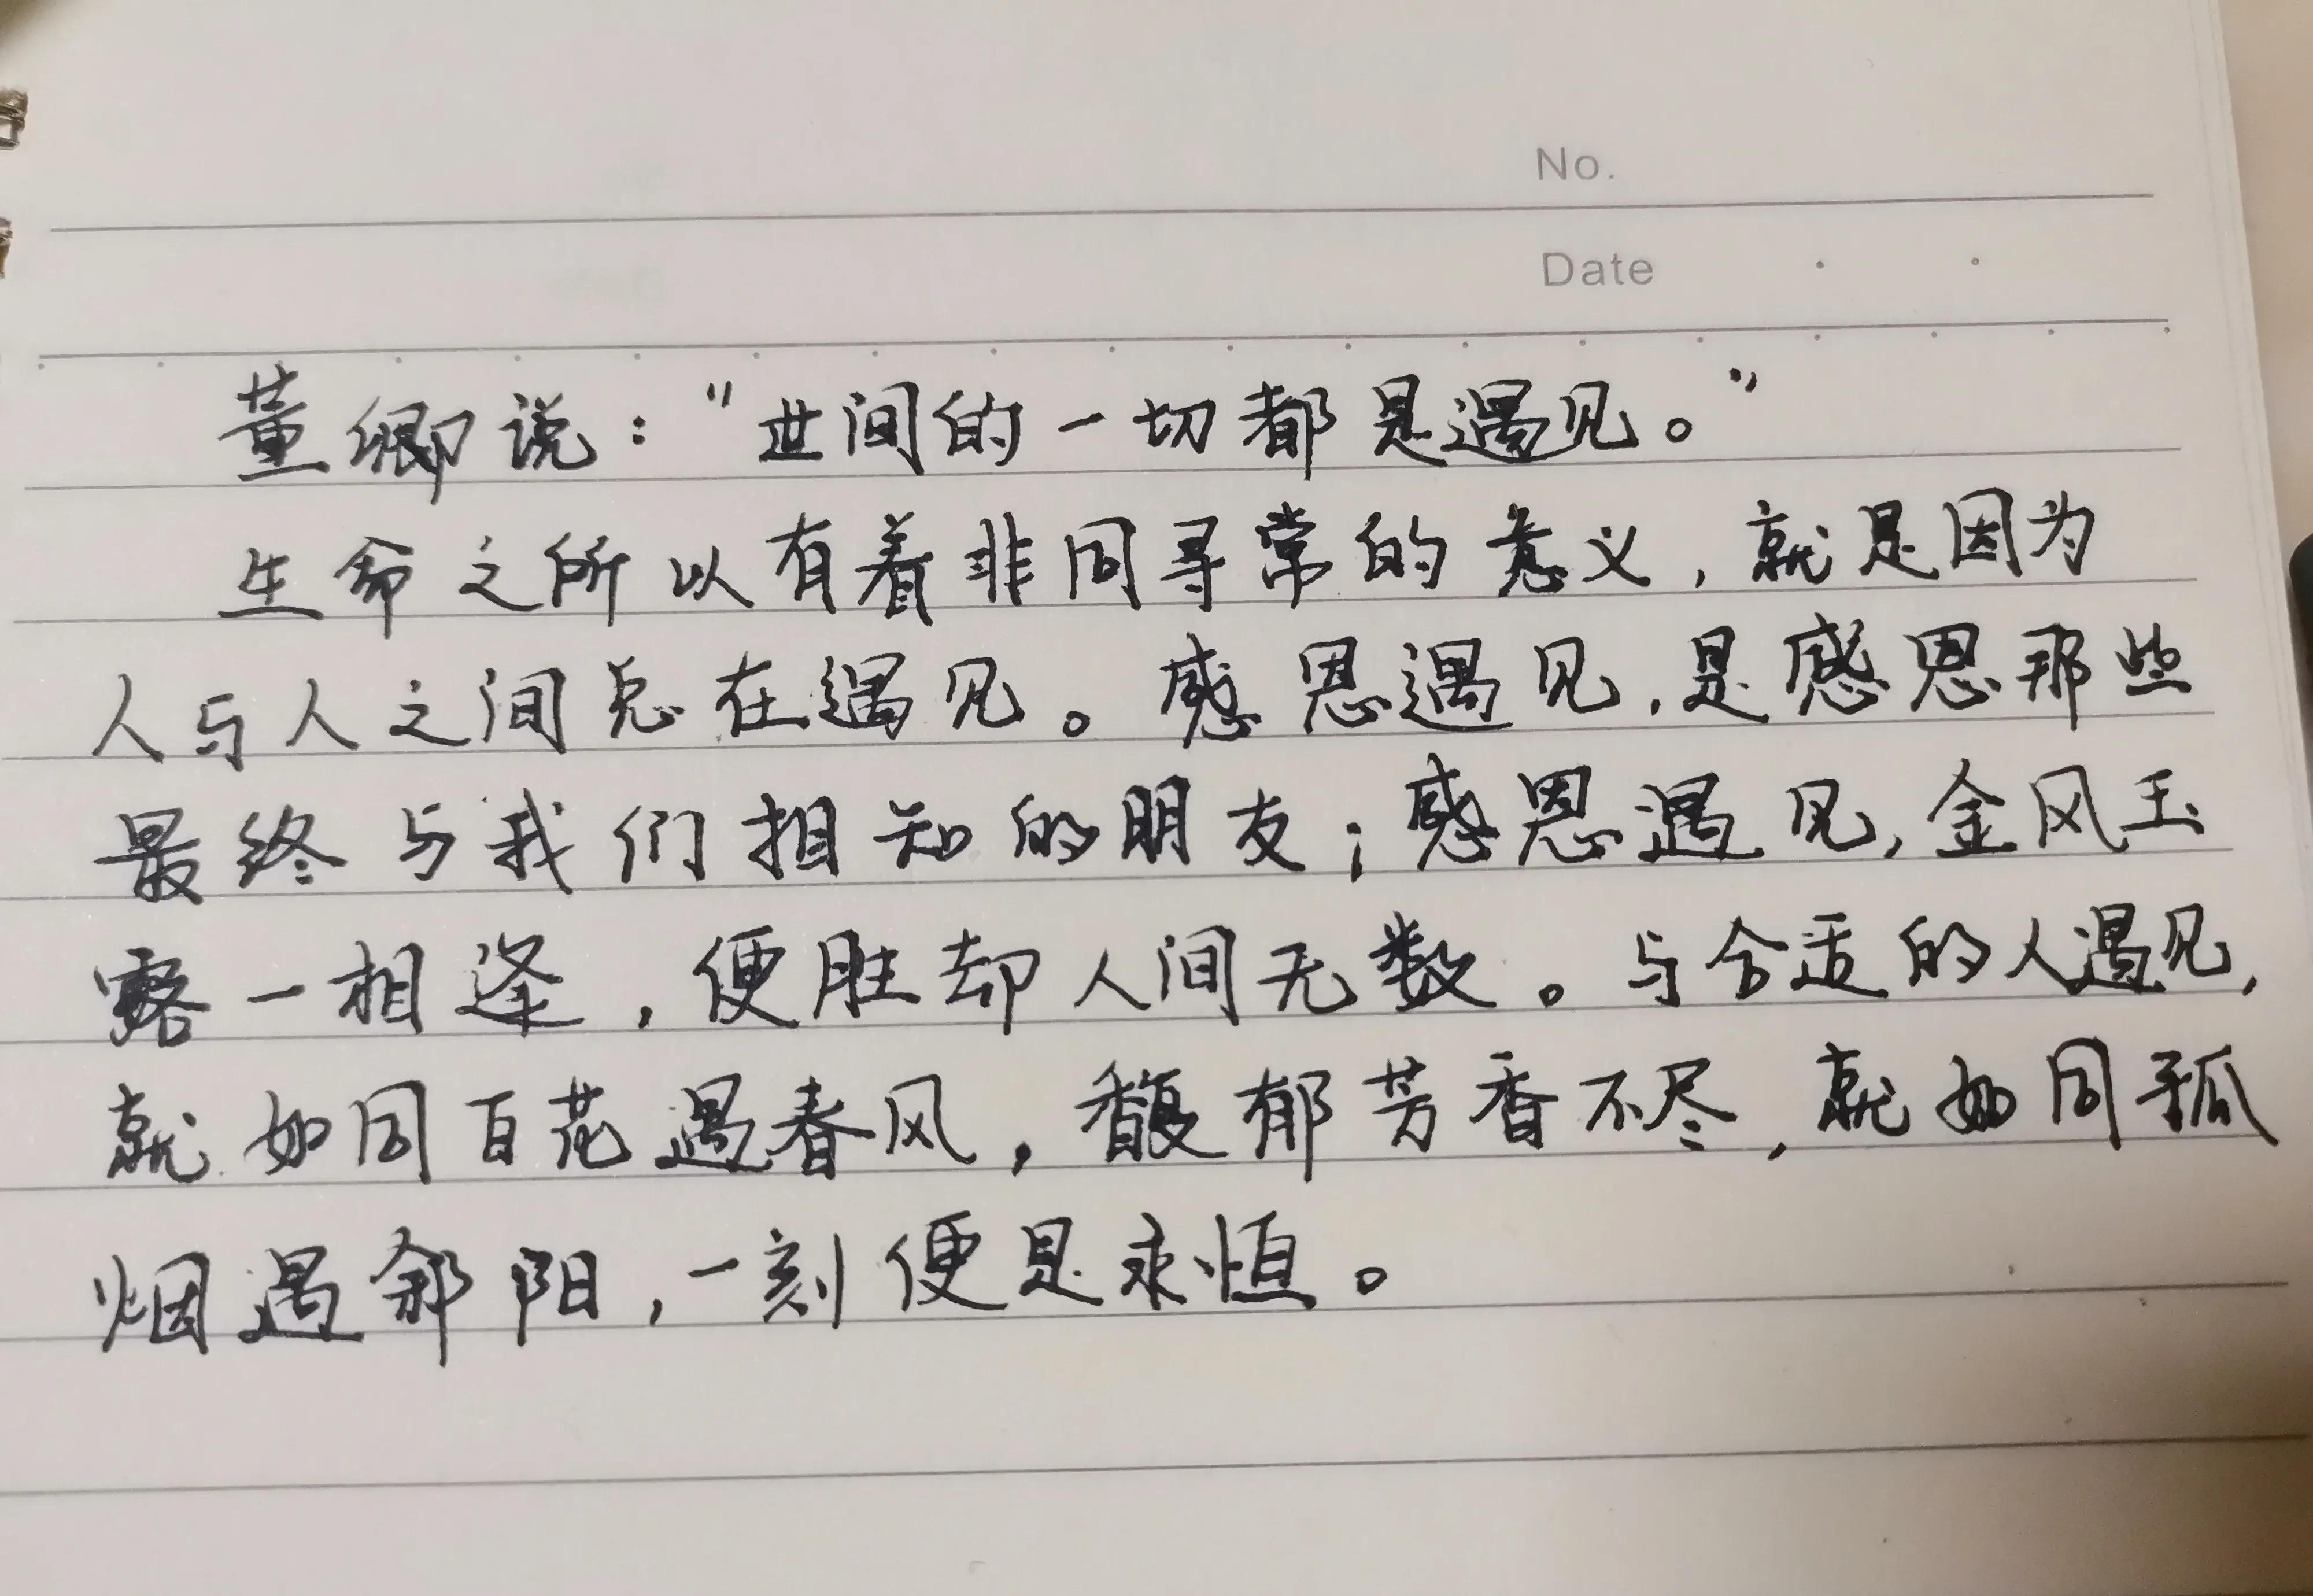 No.
Date
董卿说："世间的一切都是遇见。"
生命之所以有着非同寻常的意义，就是因为
人与人之间总在遇见。感恩遇见，是感恩那些
最终与我们相知的朋友；感恩遇见，金风玉
露一相逢，便胜却人间无数。与合适的人遇见，
就如同百花遇春风，馥郁芳香不尽，就如同孤
烟遇斜阳，一刻便是永恒。